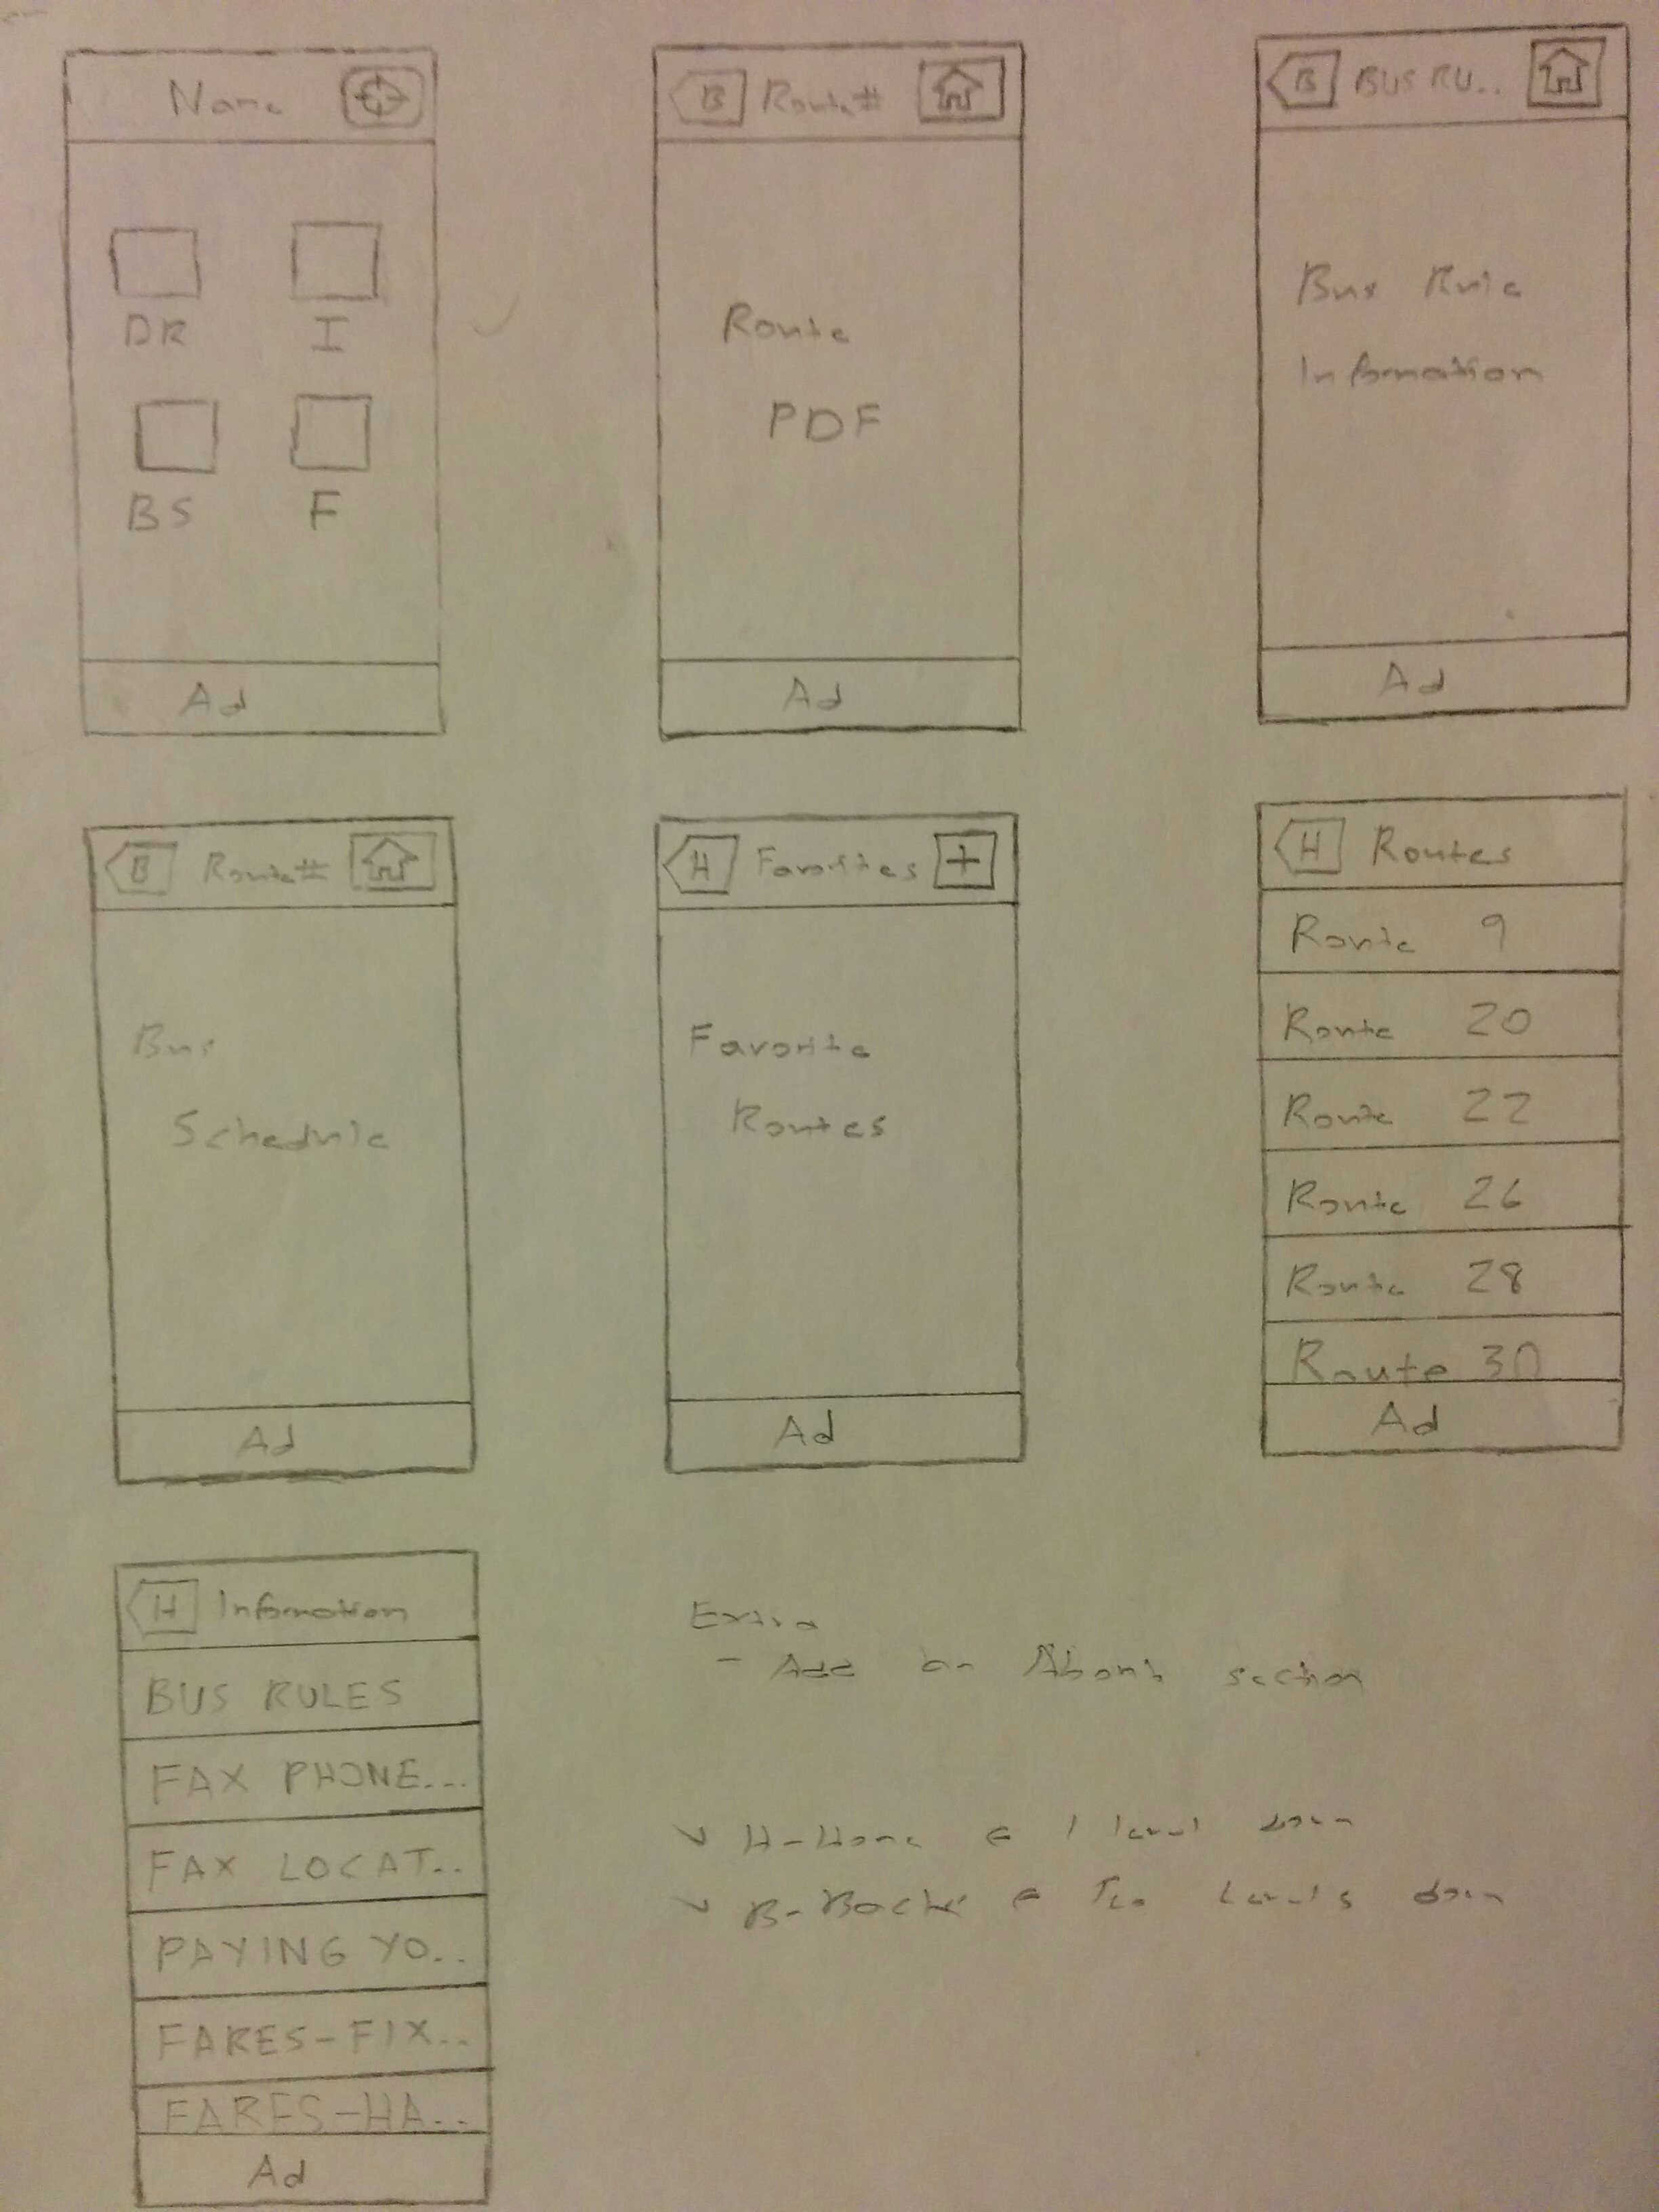 Name
DR I
BS F
Ad
B Route#
Route
PDF
Ad
B BUS RU..
Bus Rule
Information
Ad
B Route#
Bus
Schedule
Ad
H Favorites +
Favorite
Routes
Ad
H Routes
Route 9
Route 20
Route 22
Route 26
Route 28
Route 30
Ad
H Information
BUS RULES
FAX PHONE...
FAX LOCAT..
PAYING YO..
FARES-FIX..
FARES-HA..
Ad
Extra
- Add an About section
H-Home @ 1 level down
B-Back @ Two levels down